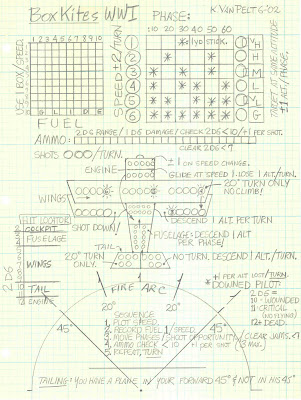 BOXKITES WWI PHASE: K. VAN PELT G-'02
1 2 3 4 5 6 7 8 9 10
10 20 30 40 50 60
USE 1 BOX/SPEED.
SPEED: ±2/TURN
TARGET AT SAME ALTITUDE
±1 ALT./PHASE.
GLIDE
FUEL
AMMO:
2D6 RANGE/1D6 DAMAGE/CHECK 2D6<10/+1 PER SHOT.
CLEAR 2D6<7
SHOTS OOO/TURN.
ENGINE
±1 ON SPEED CHANGE.
GLIDE AT SPEED 1-LOSE 1 ALT./TURN.
WINGS
20° TURN ONLY
NO CLIMB!
SHOT DOWN!
DESCEND 1 ALT. PER TURN
FUSELAGE: DESCEND 1 ALT
PER PHASE!
TAIL
20° TURN
ONLY.
NO TURN. DESCEND 1 ALT./TURN.
HIT LOCATOR
COCKPIT
FUSELAGE
2D6
WINGS
TAIL
ENGINE
FIRE ARC
20° 20°
45° 45°
*+1 PER ALT LOST/TURN.
*DOWNED PILOT:
2D6=
10-WOUNDED
11-CRITICAL
(NO FLYING)
12+ DEAD.
SEQUENCE
1. PLOT SPEED.
2. RECORD FUEL 1/SPEED.
3. MOVE PHASES/SHOT OPPORTUNITY/CLEAR JAMS. <7
4. AMMO CHECK <10 +1 PER SHOT (3 MAX.)
5. REPEAT, TURN
TAILING: YOU HAVE A PLANE IN YOUR FORWARD 45° & NOT IN HIS 45°